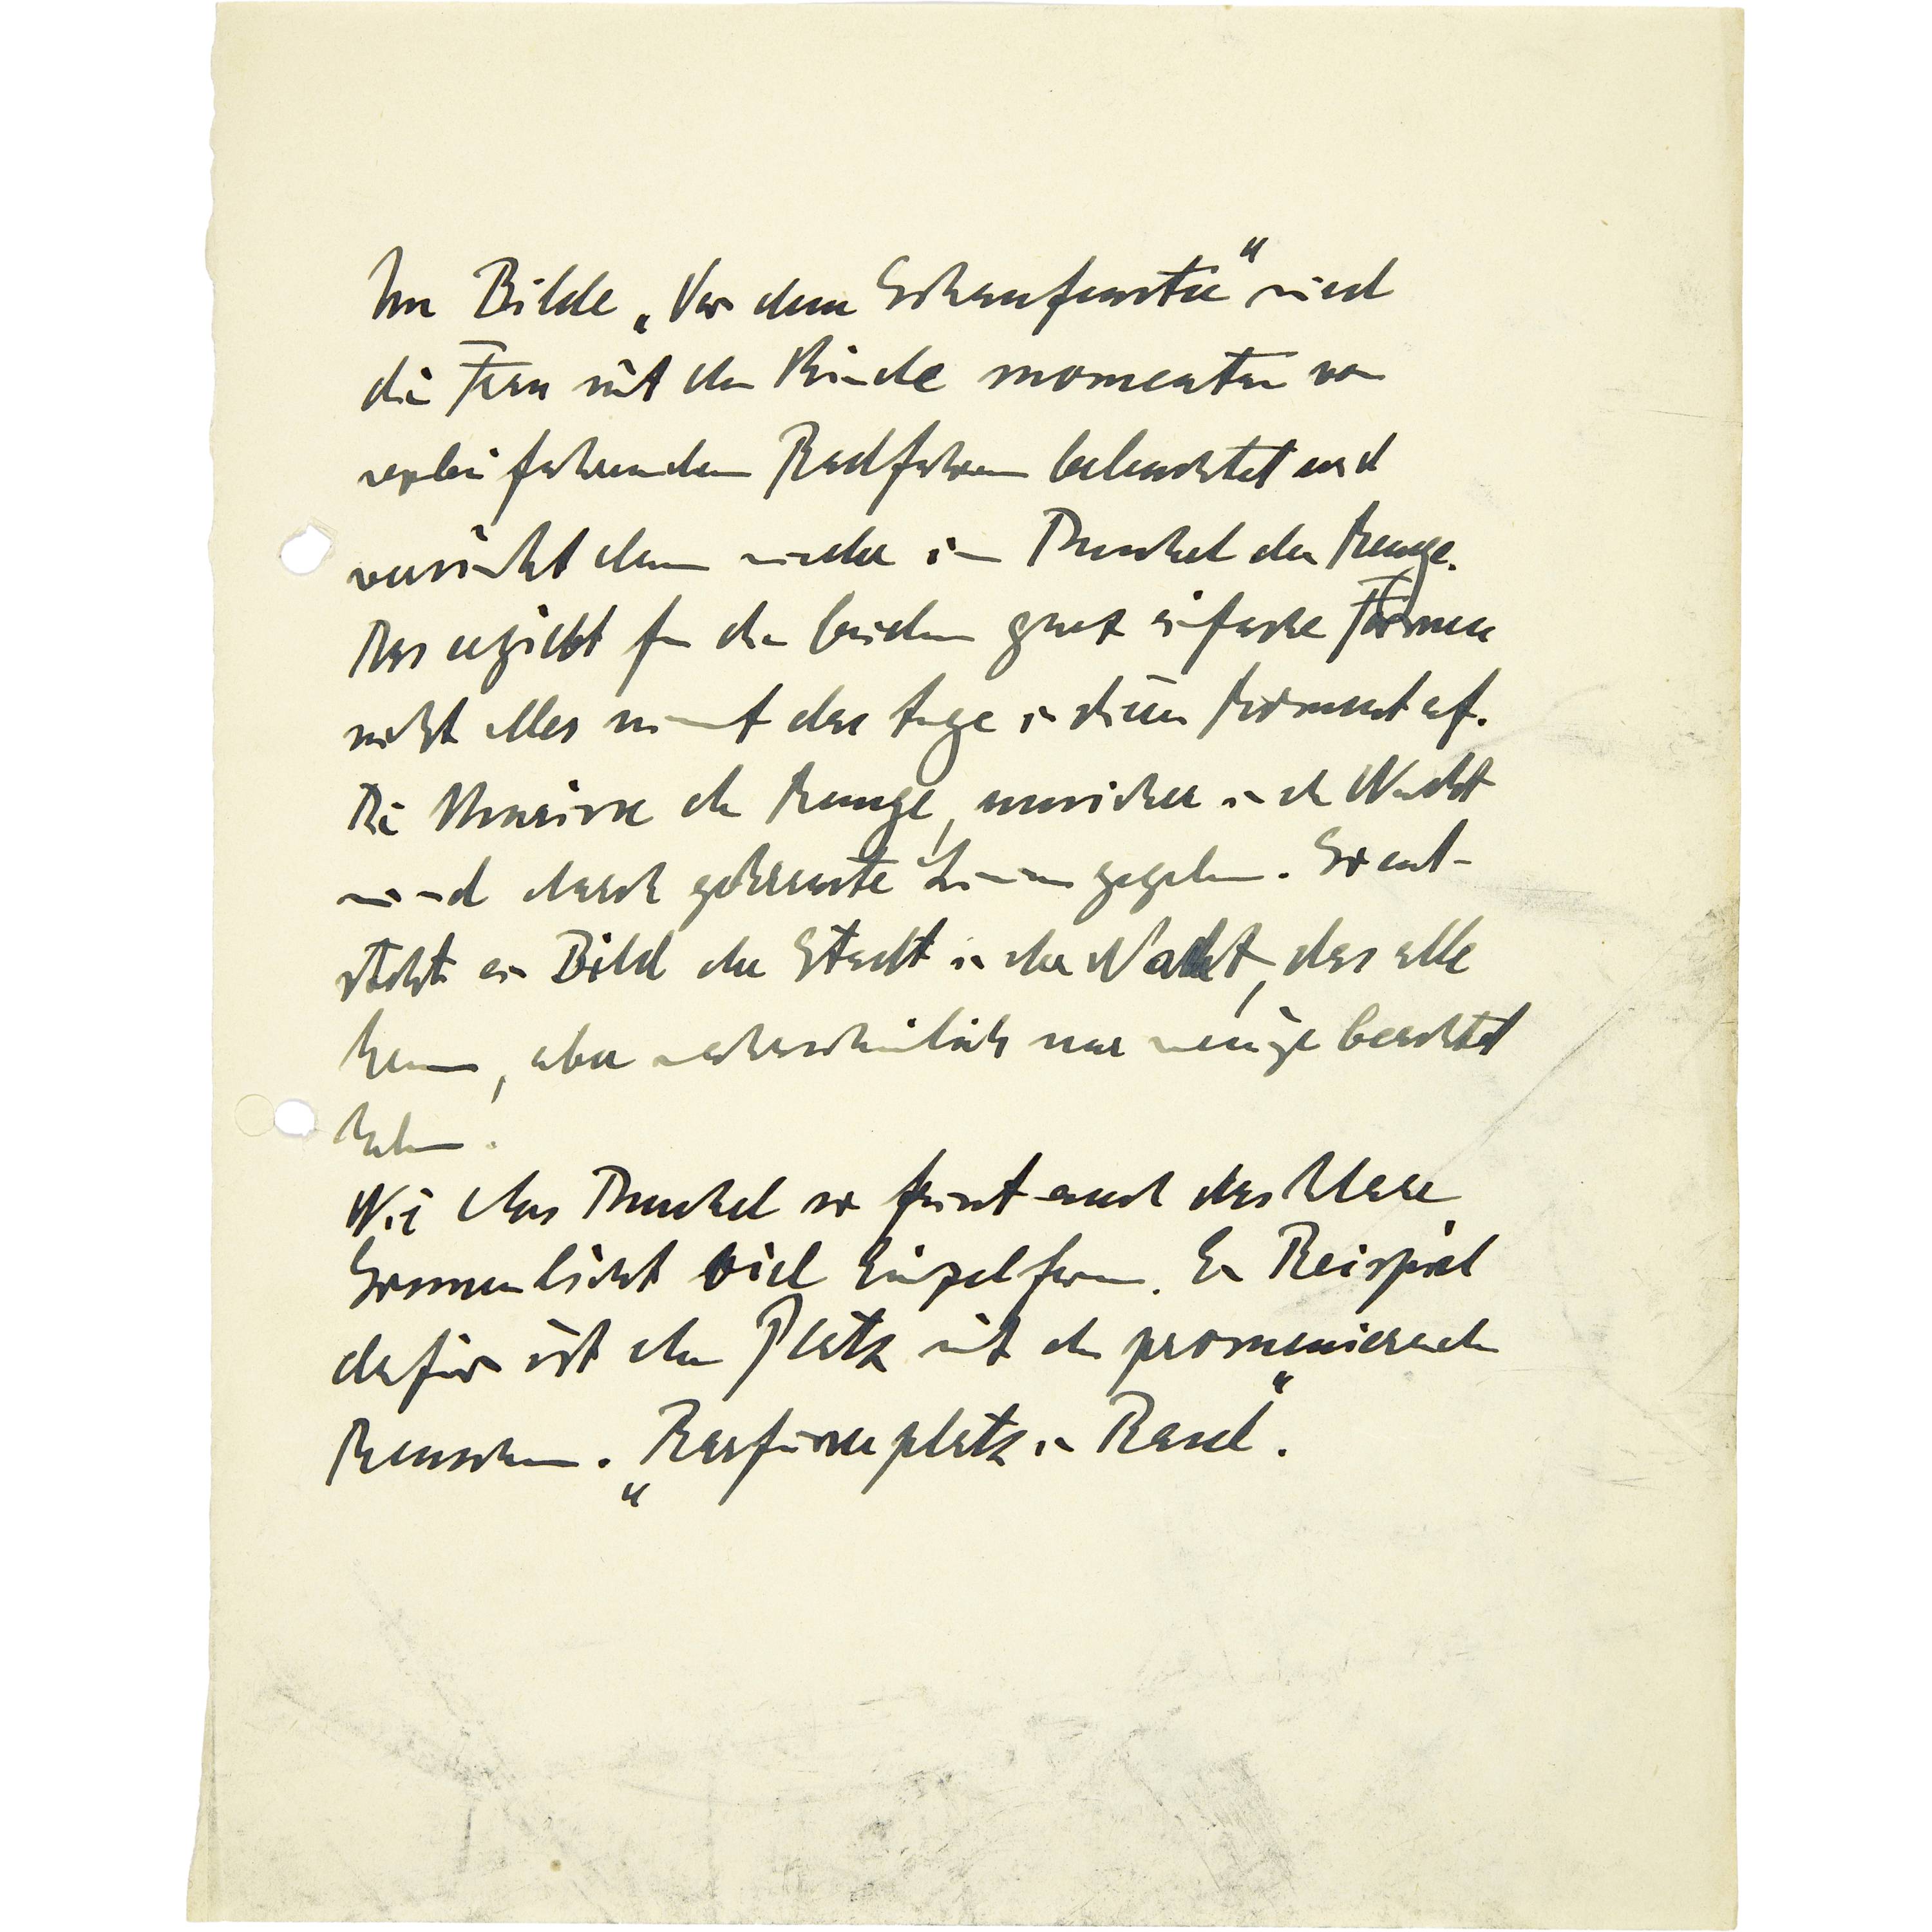 Im Bilde „Vor dem Schaufenster“ wird
die Frau mit dem Kinde momentan von
vorbeifahrenden Radfahrern beleuchtet und
versinkt dann wieder im Dunkel der Menge.
Das ergiebt für die beiden ganz einfache Formen
nicht alles nimmt das Auge in diesem Moment auf.
Die Umrisse der Menge, unsicher in der Nacht
sind durch gekrümmte Linien gegeben. So ent-
steht ein Bild der Stadt in der Nacht, das alle
kennen, aber wahrscheinlich nur wenige beachtet
haben.
Wie das Dunkel so frisst auch das klare
Sonnenlicht viel Einzelformen. Ein Beispiel
dafür ist der Platz mit den promenierenden
Menschen. „Barfüsserplatz in Basel“.